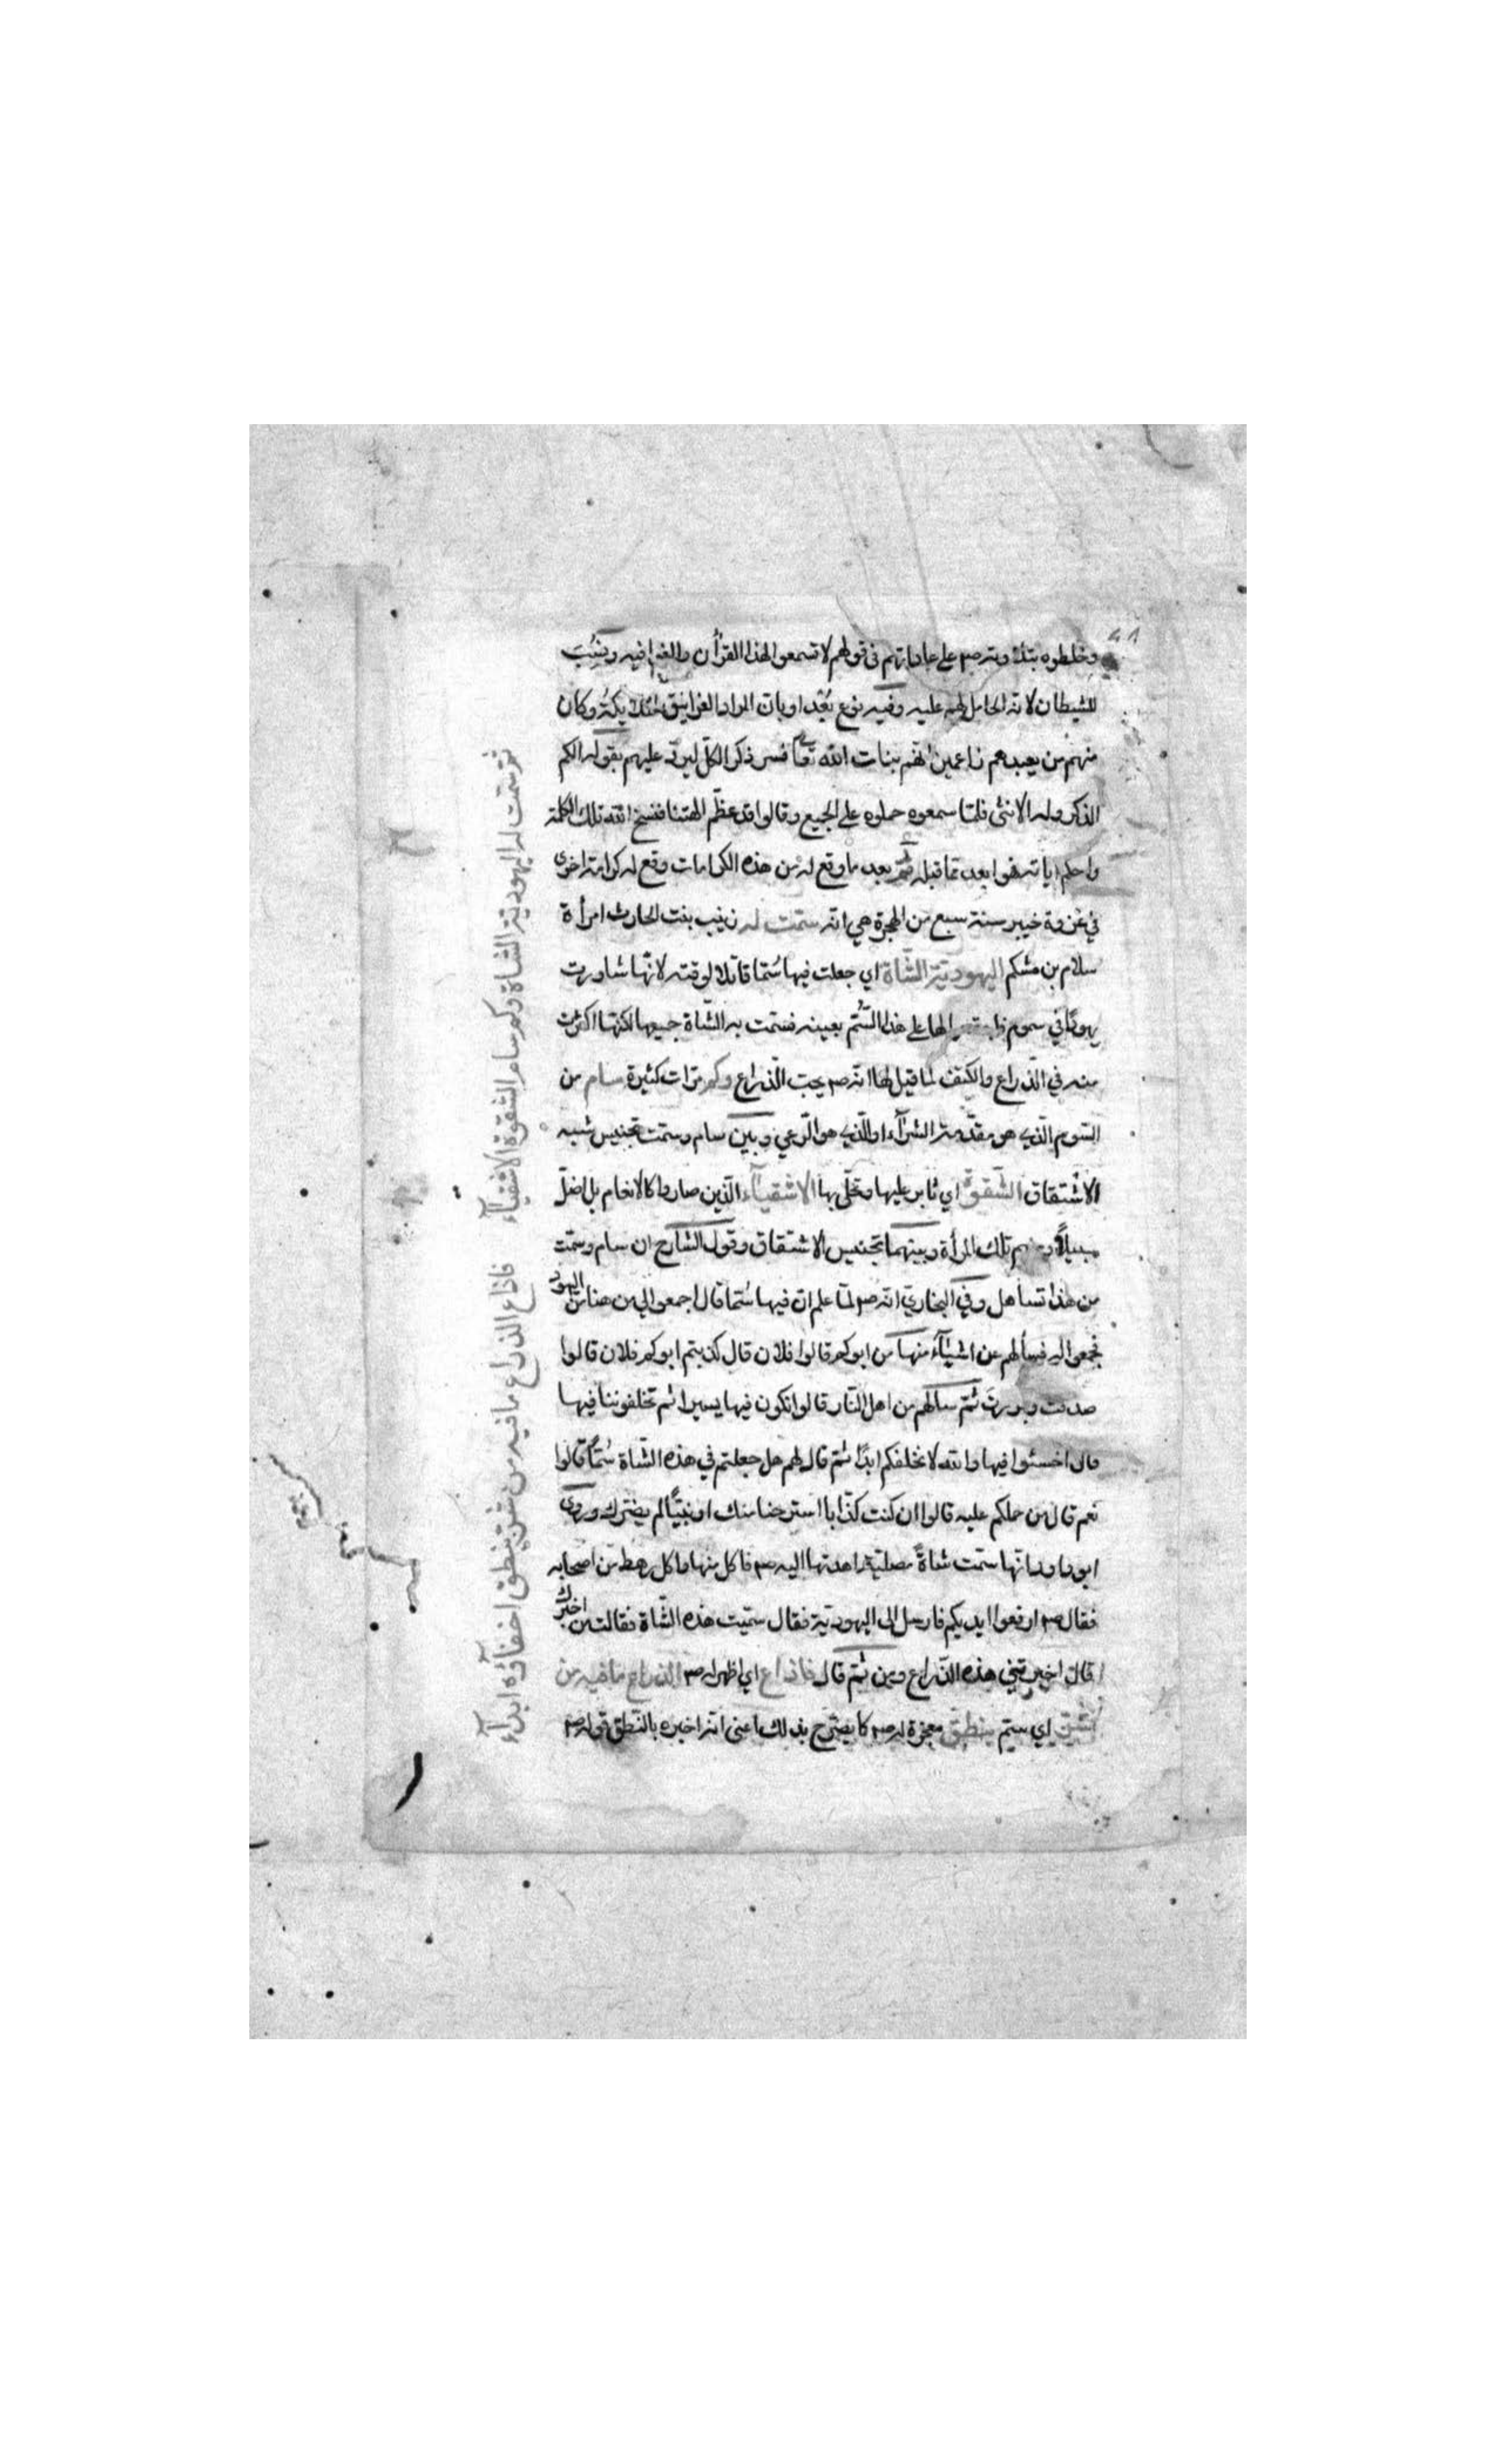 وخلطوه بتلاوته صم على عاداتهم في قولهم لا تسمعوا لهذا القرأن والغوا فيه ونسب
للشيطان لانه الحامل لهم عليه وفيه نوع بُعْد او بان المراد الغرانيق الملائكة وكان
منهم من يعبدهم زاعمين انهم بنات الله تعا فسر ذكر الكل ليرد عليهم بقوله الكم
الذكر وله الانثى فلمّا سمعوه حملوه على الجميع وقالوا قد عظّم الهتنا فنسخ الله تلك الكلمة
واحكم اياته هوا بعد مما قبله ثمّ بعد ما وقع له من هذه الكرامات وقع له كرامة اخرى
في غزوة خيبر سنة سبع من الهجرة هي انه سمّت له زينب بنت الحارث امرأة
سلام بن مشكم اليهوديّة الشّاة اي جعلت فيها سُمّا قاتلا لوقته لانّها شاورت
يهودًا في سموم لها على هذا السُّم بعينه فسمّت به الشّاة جميعها لكنّها اكثرت
منه في الذّراع والكتف لما قيل لها انّه صم يحب الذّراع وكم مرّات كثيرة سام من
السّوم الّذي هو مقدّمة الشرآء او الّذي هو الرّعي وبين سام وسمّت تجنيس شبه
الاشتقاق الشّقوة اي ثابر عليها وتحلّى بها الاشقيآء الّذين صاروا كالانعام بل اضلّ
سبيلاً ومنهم تلك المرأة وبينهما تجنيس الاشتقاق وقول الشارح ان سام وسمّت
من هذا تساهل وفي البخاريّ انّه صم لمّا علم ان فيها سُمّا قال اجمعوا الي من هنا من اليهود
فجمعوا اليه فسألهم عن اشيآء منها من ابوكم قالوا فلان قال كذبتم ابوكم فلان قالوا
صدقت وبررت ثمّ سالهم من اهل النّار قالوا نكون فيها يسيرا ثم تخلفوننا فيها
قال اخسئوا فيها والله لا نخلفكم ابدًا ثمّ قال لهم هل جعلتم في هذه الشّاة سُمّاً قالوا
نعم قال من حملكم عليه قالوا ان كنت كذّابا استرحنا منك او نبيّاً لم يضرّك وروى
ابو داود انّها سمّت شاةً مصليّة ثم اهدتها اليه صم فاكل منها واكل رهط من اصحابه
فقال صم ارفعوا ايديكم فارسل الى اليهوديّة فقال سمّيت هذه الشّاة فقالت من اخبرك
قال اخبرتني هذه الذّراع ومن ثمّ قال فاذاع اي اظهر له صم الذراع ما فيه من
شرّ اي سمّ بنطق معجزة له صم كما يصرّح بذلك اعني انّه اخبره بالنّطق قوله صم
ثم سمّت له اليهوديّة الشاة وكم سام الشقوة الاشقيآء
فاذاع الذراع ما فيه من شرّ بنطق اخفآؤه ابدآء